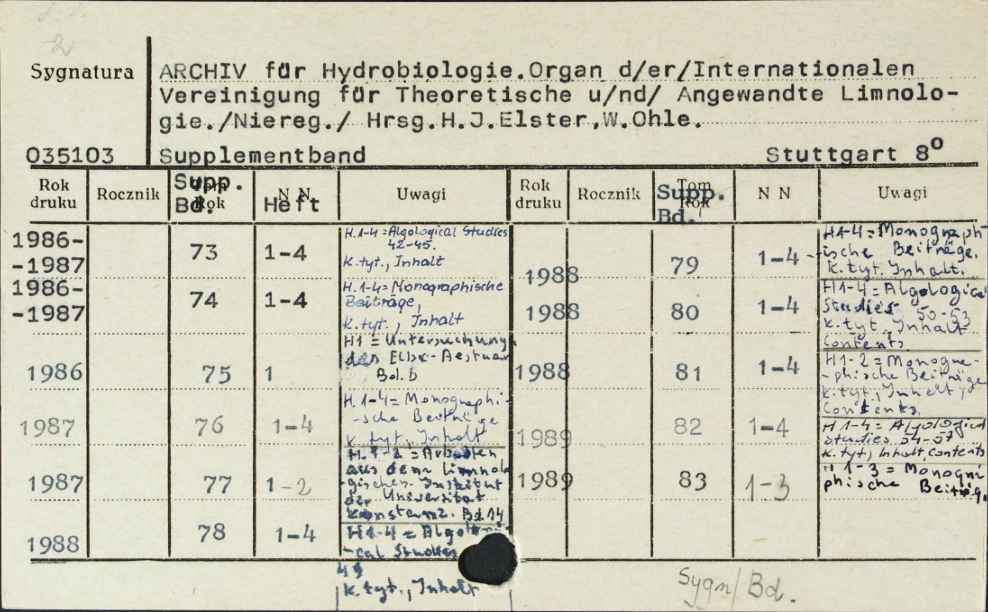 2
Sygnatura
ARCHIV für Hydrobiologie.Organ d/er/Internationalen
Vereinigung für Theoretische u/nd/ Angewandte Limnolo-
gie./Niereg./ Hrsg.H.J.Elster,W.Ohle.
035103 Supplementband Stuttgart 8º
Rok druku Rocznik Supp. Bd. Tom Rok N N Heft Uwagi Rok druku Rocznik Supp. Bd. Tom Rok N N Uwagi
1986-
-1987 73 1-4
H.1-4=Algological Studies
42-45.
k.tyt., Inhalt
1986-
-1987 74 1-4
H.1-4=Monographische
Beiträge,
k.tyt., Inhalt
1986 75 1
H1=Untersuchung
des Elbe-Aestuar
Bd.6
1987 76 1-4
H.1-4=Monographi-
-sche Beiträge
k.tyt., Inhalt
1987 77 1-2
H.1-2=Arbeiten
aus dem Limnolo
gischen Institut
der Universität
Konstanz. Bd.14
1988 78 1-4
H1-4=Algologi-
-cal Studies
49
k.tyt., Inhalt
1988 79 1-4
H1-4=Monograph-
-ische Beiträge,
k.tyt. Inhalt.
1988 80 1-4
H1-4=Algological
Studies 50-53
k.tyt, Inhalt
Contents
1988 81 1-4
H1-2=Monogra-
-phische Beiträge
k.tyt., Inhalt,
Contents.
1989 82 1-4
H1-4=Algological
Studies 54-57
k.tyt, Inhalt, Contents
1989 83 1-3
H1-3=Monogra
phische Beiträg.
Sygn/Bd.